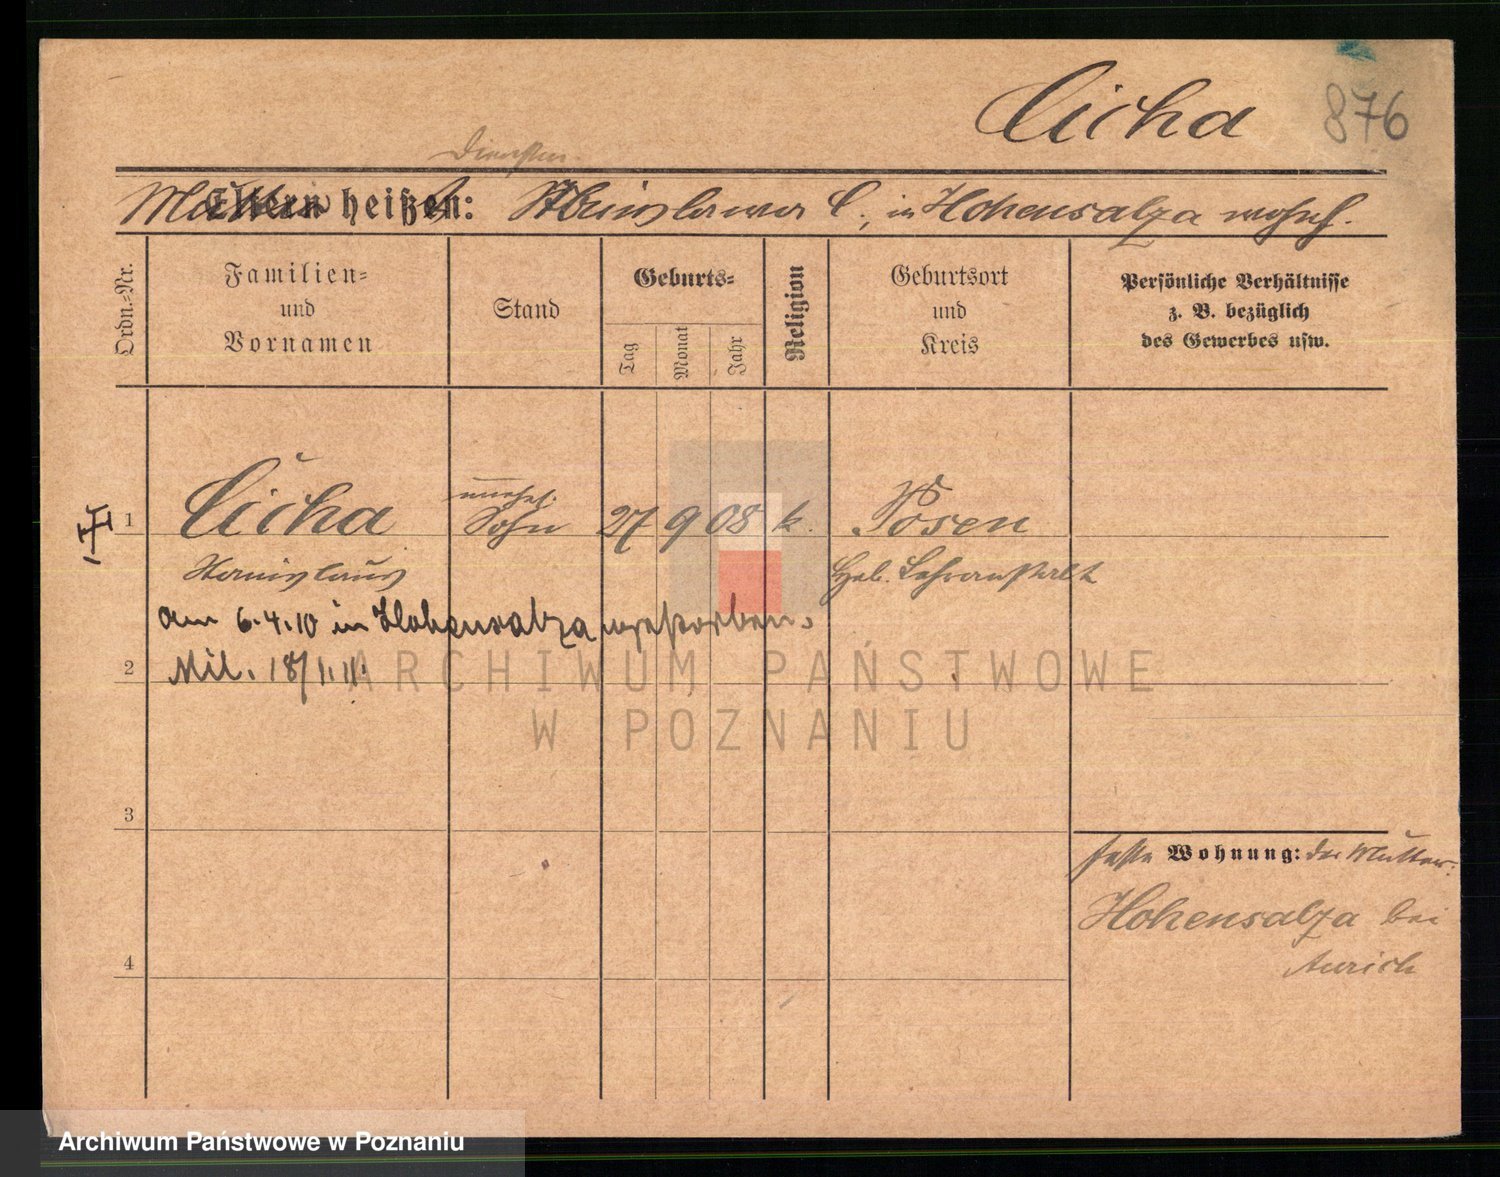 Cicha 876
Dienstm.
Mutter heißt: Stanislawa C., in Hohensalza wohnh.
Ordn.=Nr.
Familien=
und
Vornamen
Stand
Geburts=
Tag
Monat
Jahr
Religion
Geburtsort
und
Kreis
Persönliche Verhältnisse
z. B. bezüglich
des Gewerbes usw.
1 Cicha unehel. Sohn 27 9 08 k. Posen
Stanislaus Heb. Lehranstalt
am 6.4.10 in Hohensalza gestorben.
2 Mil. 18/1.11.
3
4
feste Wohnung: der Mutter:
Hohensalza bei
Aurich
ARCHIWUM PAŃSTWOWE
W POZNANIU
Archiwum Państwowe w Poznaniu